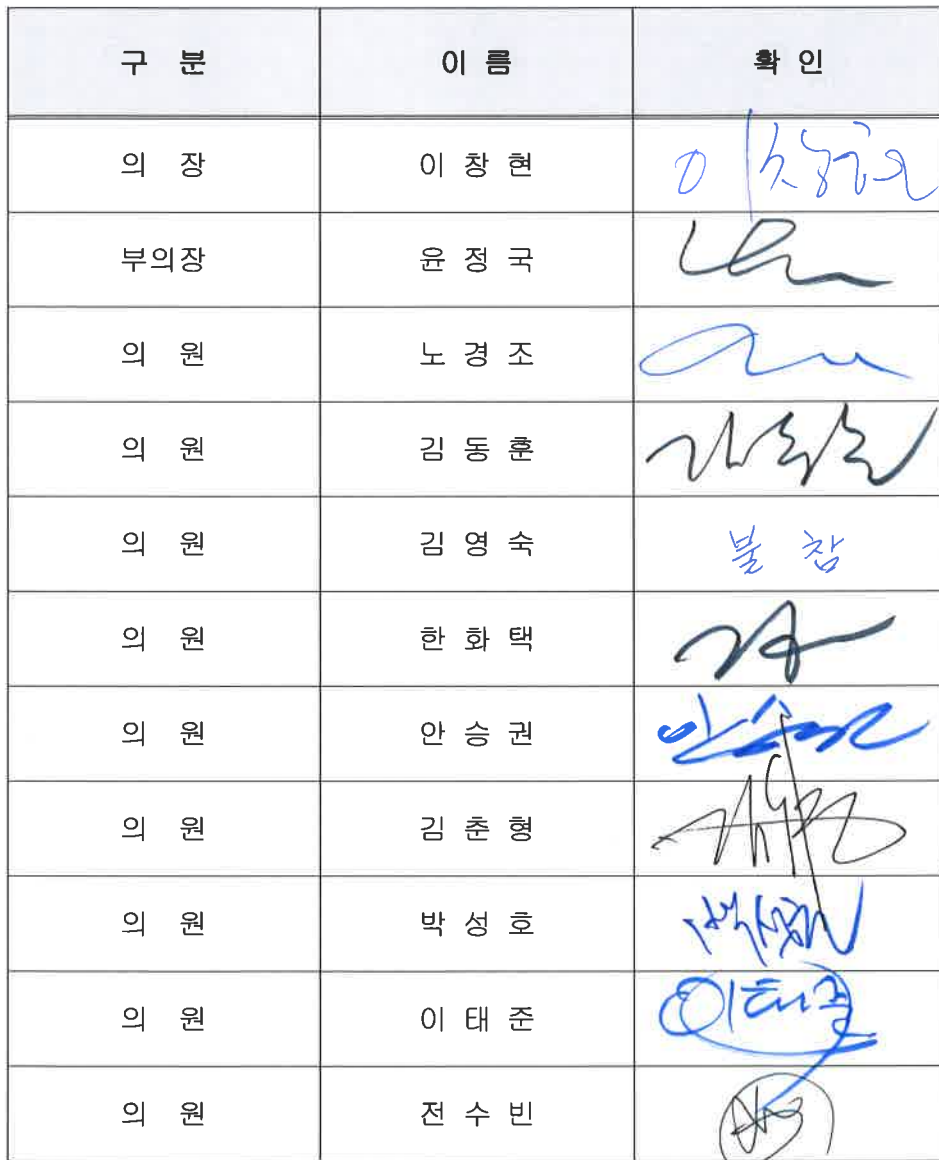 구 분 이 름 확 인
의 장 이 창 현 이창현
부의장 윤 정 국
의 원 노 경 조
의 원 김 동 훈
의 원 김 영 숙 불 참
의 원 한 화 택
의 원 안 승 권
의 원 김 춘 형
의 원 박 성 호
의 원 이 태 준 이태준
의 원 전 수 빈